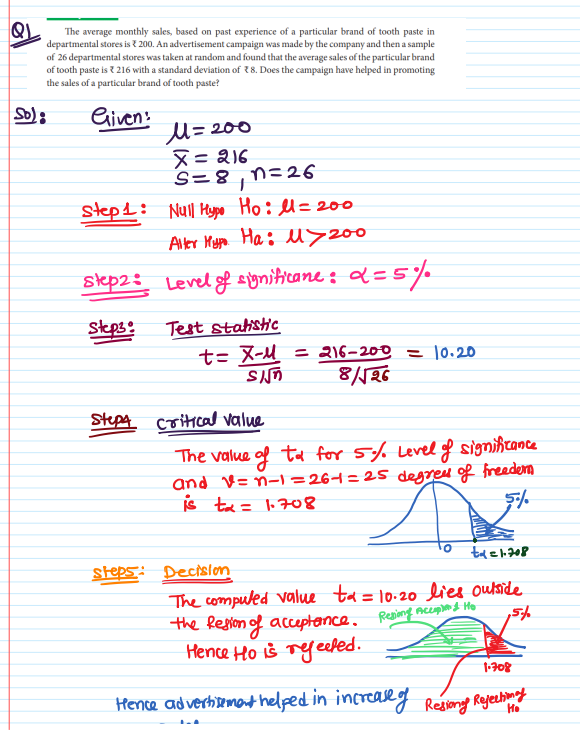 Q1 The average monthly sales, based on past experience of a particular brand of tooth paste in
departmental stores is ₹ 200. An advertisement campaign was made by the company and then a sample
of 26 departmental stores was taken at random and found that the average sales of the particular brand
of tooth paste is ₹ 216 with a standard deviation of ₹ 8. Does the campaign have helped in promoting
the sales of a particular brand of tooth paste?
Sol: Given:
μ = 200
x̄ = 216
S = 8, n = 26
Step1: Null Hypo Ho: μ = 200
Alter Hypo Ha: μ > 200
Step2: Level of significane: α = 5%
Step3: Test statistic
t = x̄-μ / S/√n = 216-200 / 8/√26 = 10.20
Step4 Critical value
The value of tα for 5% Level of significance
and ν = n-1 = 26-1 = 25 degree of freedom
is tα = 1.708
5%
0 tα = 1.708
Step5: Decision
The computed value tα = 10.20 lies outside
the Region of acceptance.
Hence Ho is rejected.
Region of Accepting Ho
5%
1.708
Region of Rejection of
Ho
Hence advertisement helped in increase of